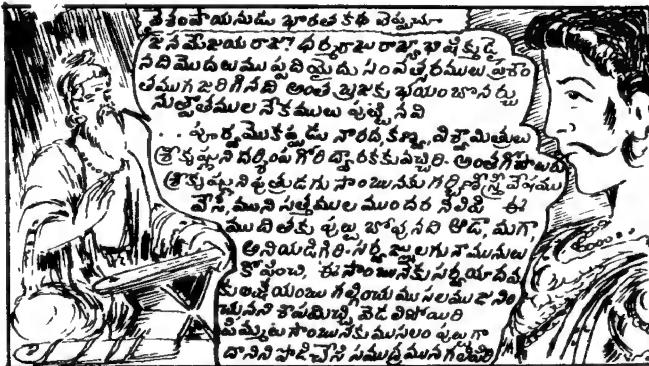 వైశంపాయనుడు భారతకథ చెప్పుచూ
జనమేజయ రాజా! ధర్మరాజు రాజ్యాభిషిక్తుడై
నది మొదలు ముప్పదియైదు సంవత్సరములు ప్రశాం
తముగ జరిగినది అంత ప్రజకు భయం బొనర్చు
నుత్పాతము లనేకములు పుట్టినవి
.. పూర్వమొకప్పుడు నారద, కణ్వ, విశ్వామిత్రులు
శ్రీకృష్ణుని దర్శింప గోరి ద్వారకకు వచ్చిరి. అంత
శ్రీకృష్ణుని పుత్రుడగు సాంబునకు గర్భిణీస్త్రీ వేషము
వేసి, ముని సత్తముల ముందర నిలిపి ఈ
ముదితకు పుట్ట బోవునది ఆడా, మగా,
అని యడిగిరి. సర్వజ్ఞులగు నా మునులు
కోపించి, ఈ సాంబునకు సర్వయాదవ
కులక్షయంబు గల్గించు ముసలము జనిం
చునని శాపమిచ్చి వెడలిపోయిరి
పిమ్మట సాంబునకు ముసలం పుట్టగా
దానిని పొడిచేసి సముద్రమున గలిపిరి